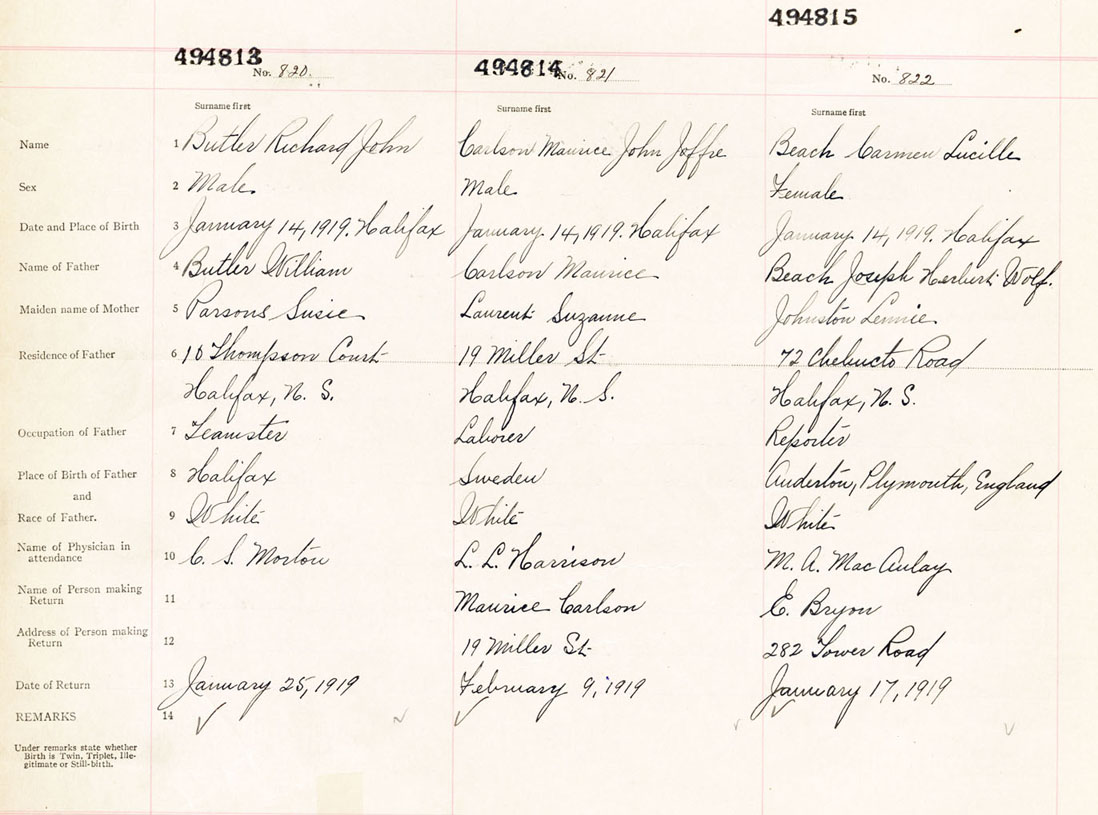 494815
494813
494814
No. 820.
No. 821
No. 822
Surname first
Surname first
Surname first
Name 1 Butler Richard John Carlson Maurice John Joffre Beach Carmen Lucille
Sex 2 Male. Male Female
Date and Place of Birth 3 January 14, 1919. Halifax January 14, 1919. Halifax January 14, 1919. Halifax
Name of Father 4 Butler William Carlson Maurice Beach Joseph Herbert Wolf.
Maiden name of Mother 5 Parsons Susie Laurent Suzanne Johnston Lennie
Residence of Father 6 10 Thompson Court 19 Miller St 72 Chebucto Road
Halifax, N. S. Halifax, N. S. Halifax, N. S.
Occupation of Father 7 Teamster Laborer Reporter
Place of Birth of Father 8 Halifax Sweden Anderton, Plymouth, England
and
Race of Father. 9 White White White
Name of Physician in
attendance 10 C. S. Morton L. L. Harrison M. A. MacAulay
Name of Person making
Return 11 Maurice Carlson E. Bryon
Address of Person making
Return 12 19 Miller St 282 Tower Road
Date of Return 13 January 25, 1919 February 9, 1919 January 17, 1919
REMARKS 14
Under remarks state whether
Birth is Twin, Triplet, Ille-
gitimate or Still-birth.